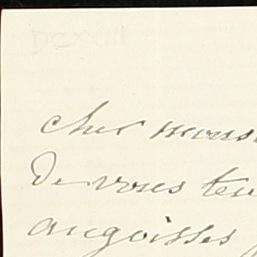 cher mons
De vous ten
angoisses